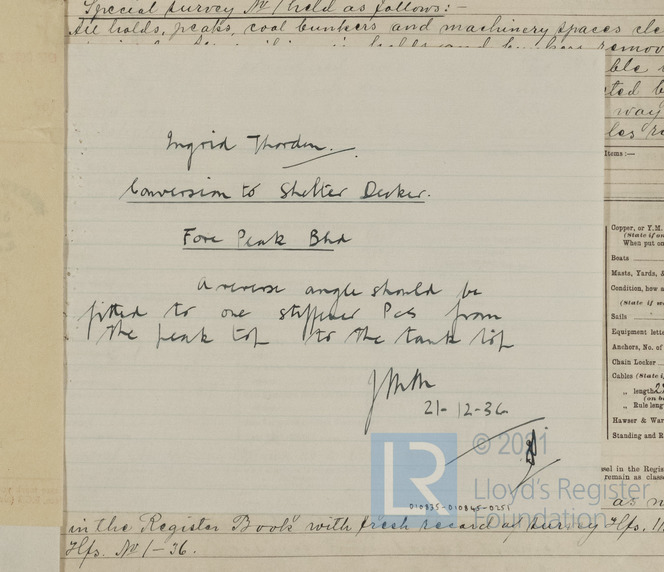 Special Survey No 1 held as follows:-
All holds, peaks, coal bunkers and machinery spaces
remov
way
Items:—
Copper, or Y.M.
(State if on
When put on
Boats
Masts, Yards, &
Condition, how a
(State if w
Sails
Equipment lette
Anchors, No. of
Chain Locker
Cables (State i
„ length
(on b
„ Rule leng
Hawser & War
Standing and R
Ingrid Thorden.
Conversion to Shelter Decker.
Fore Peak Bhd
A reverse angle should be
fitted to one stiffener P&S from
the peak top to the tank top
21-12-36
© 2021
LR
Lloyd's Register
Foundation
010835-010845-0251
sel in the Regis
remain as classe
as n
in the Register Book with fresh record of survey Hfs. 11
Hfs. No 1-36.